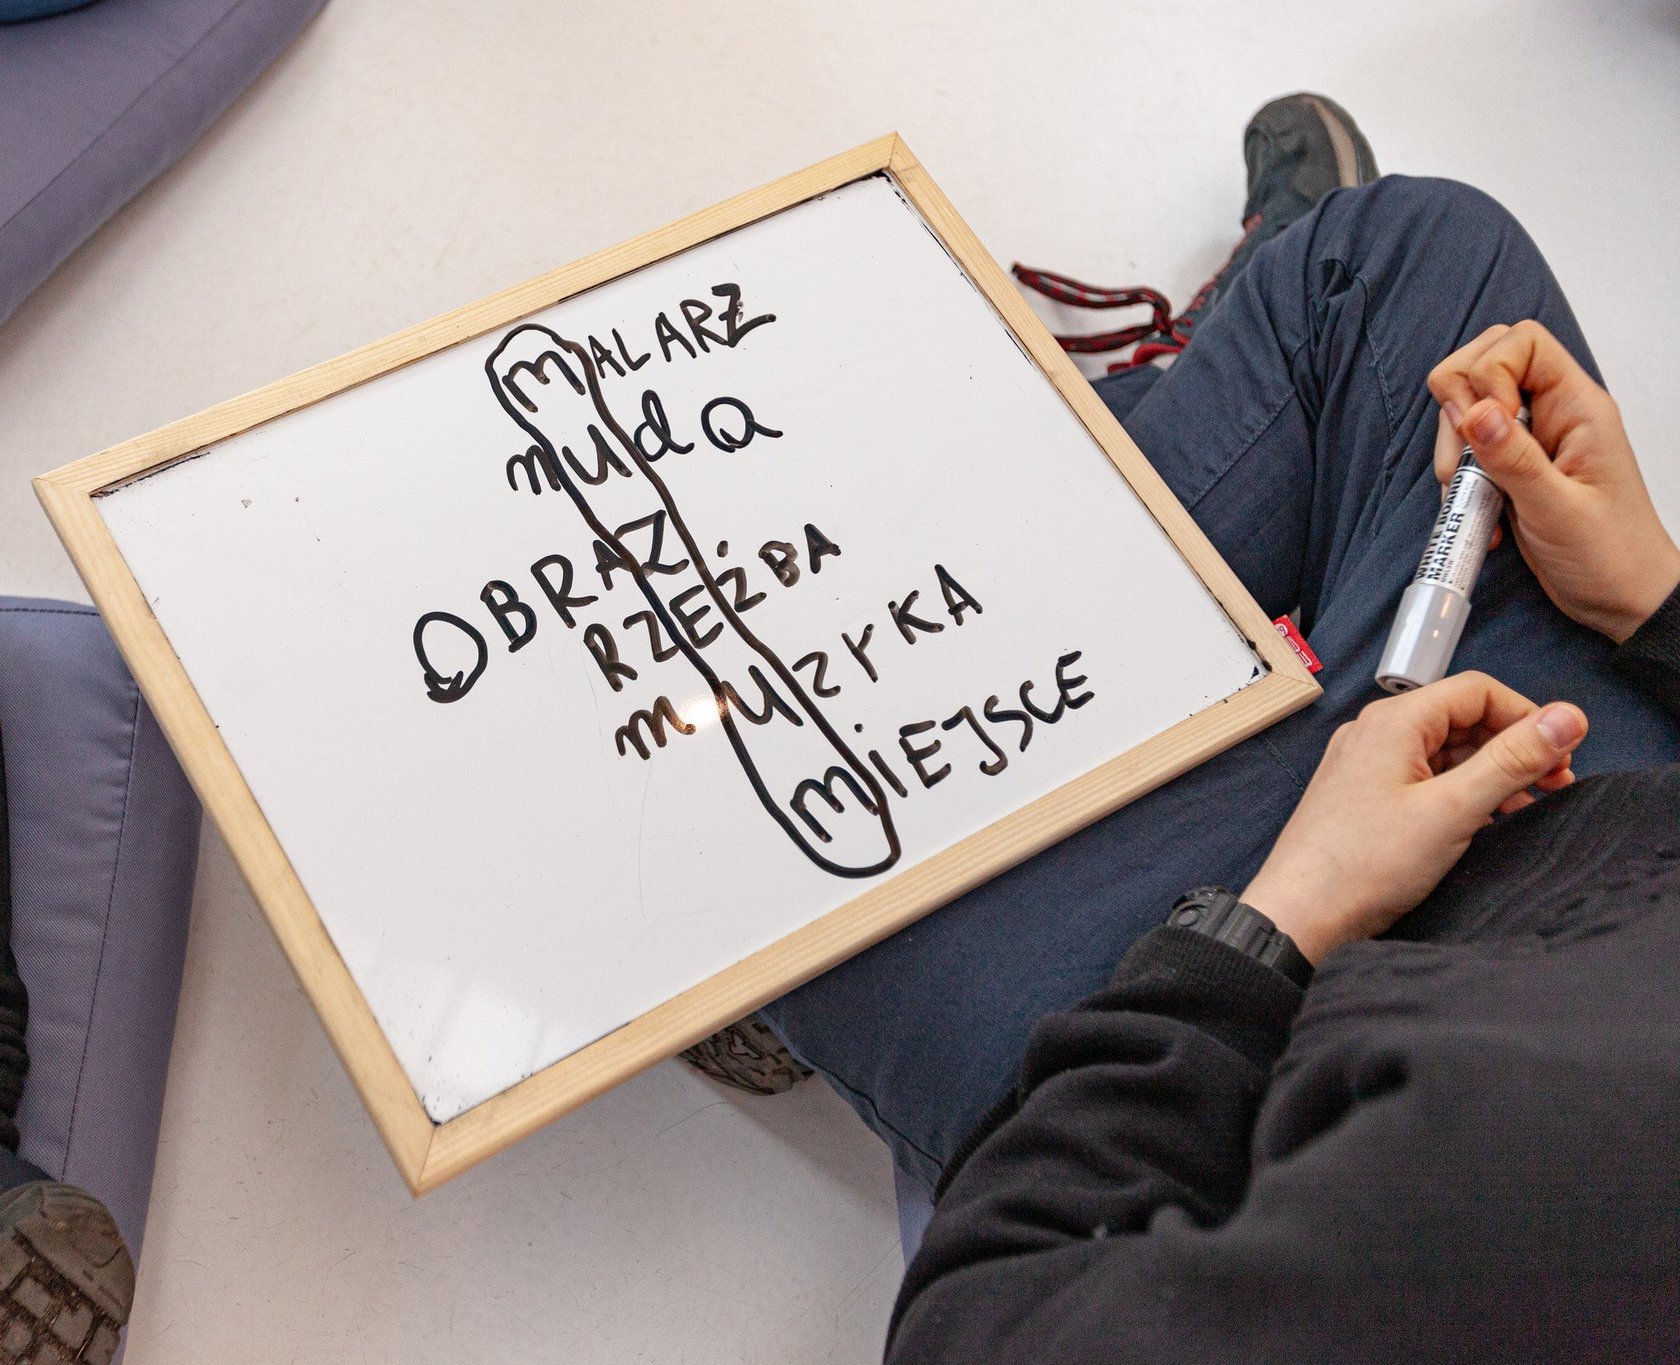 mALARZ
nuda
OBRAZ
RZEŹBA
muzYKA
miEJSCE
WHITE BOARD
MARKER